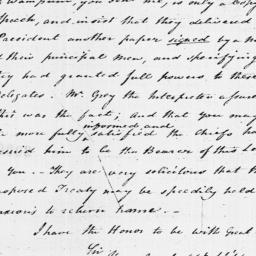 Wampum, you sent me, is only a Copy
Speech, and insist that they delivered
President another paper signed by a
their principal men, and specifying
had granted full powers to these
Delegates. Mr. Grey the Interpreter assured
this was the fact; and that you may
more fully informed, and satisfied the Chiefs have
desired him to be the Bearer of this Le
You. - They are very solicitous that the
proposed Treaty may be speedily held
anxious to return home. -
I have the Honor to be with Great
Sir